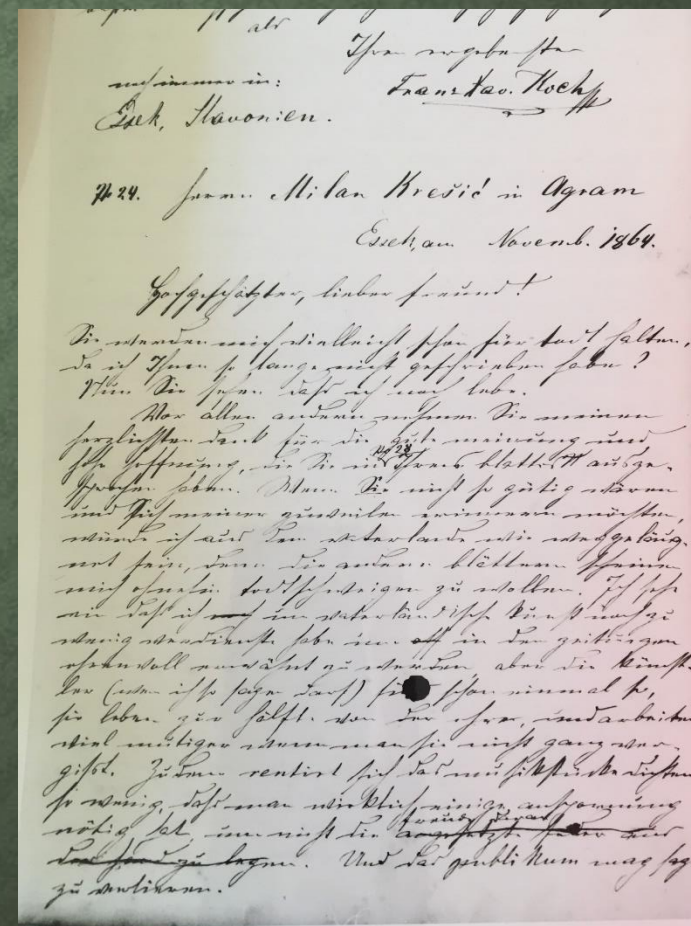 als
Ihr ergebenster
noch immer in: Franz Xav. Koch
Essek, Slavonien.
№ 24. Herrn Milan Krešić in Agram
Essek, am Novemb. 1864.
Hochgeschätzter, lieber Freund!
Sie werden mich vielleicht schon für todt halten,
da ich Ihnen so lange nicht geschrieben habe?
Nun Sie sehen daß ich noch lebe.
Vor allen andern nehmen Sie meinen
herzlichsten dank für die gute meinung und
hohe hoffnung, die Sie in Ihres blattes ausge-
sprochen haben. Wenn Sie nicht so gütig wären
und Sich meiner zuweilen erinnern möchten,
würde ich aus dem vaterlande wie weggeläug-
net sein, denn die andern blättern scheinen
mich ohnehin todtschweigen zu wollen. Ich sehe
ein daß ich um vaterländische kunst noch zu
wenig verdienste habe um oft in den zeitungen
ehrenvoll erwähnt zu werden aber die künst-
ler (wenn ich so sagen darf) schon einmal so,
sie leben zur hälfte von der ehre, und arbeiten
viel mutiger wenn man sie nicht ganz ver-
gißt. Zudem rentirt sich das musikstücke dichten
so wenig, daß man wirklich einige anspornung
nötig hat, um nicht die
zu legen. Und das publikum mag
zu verlieren.